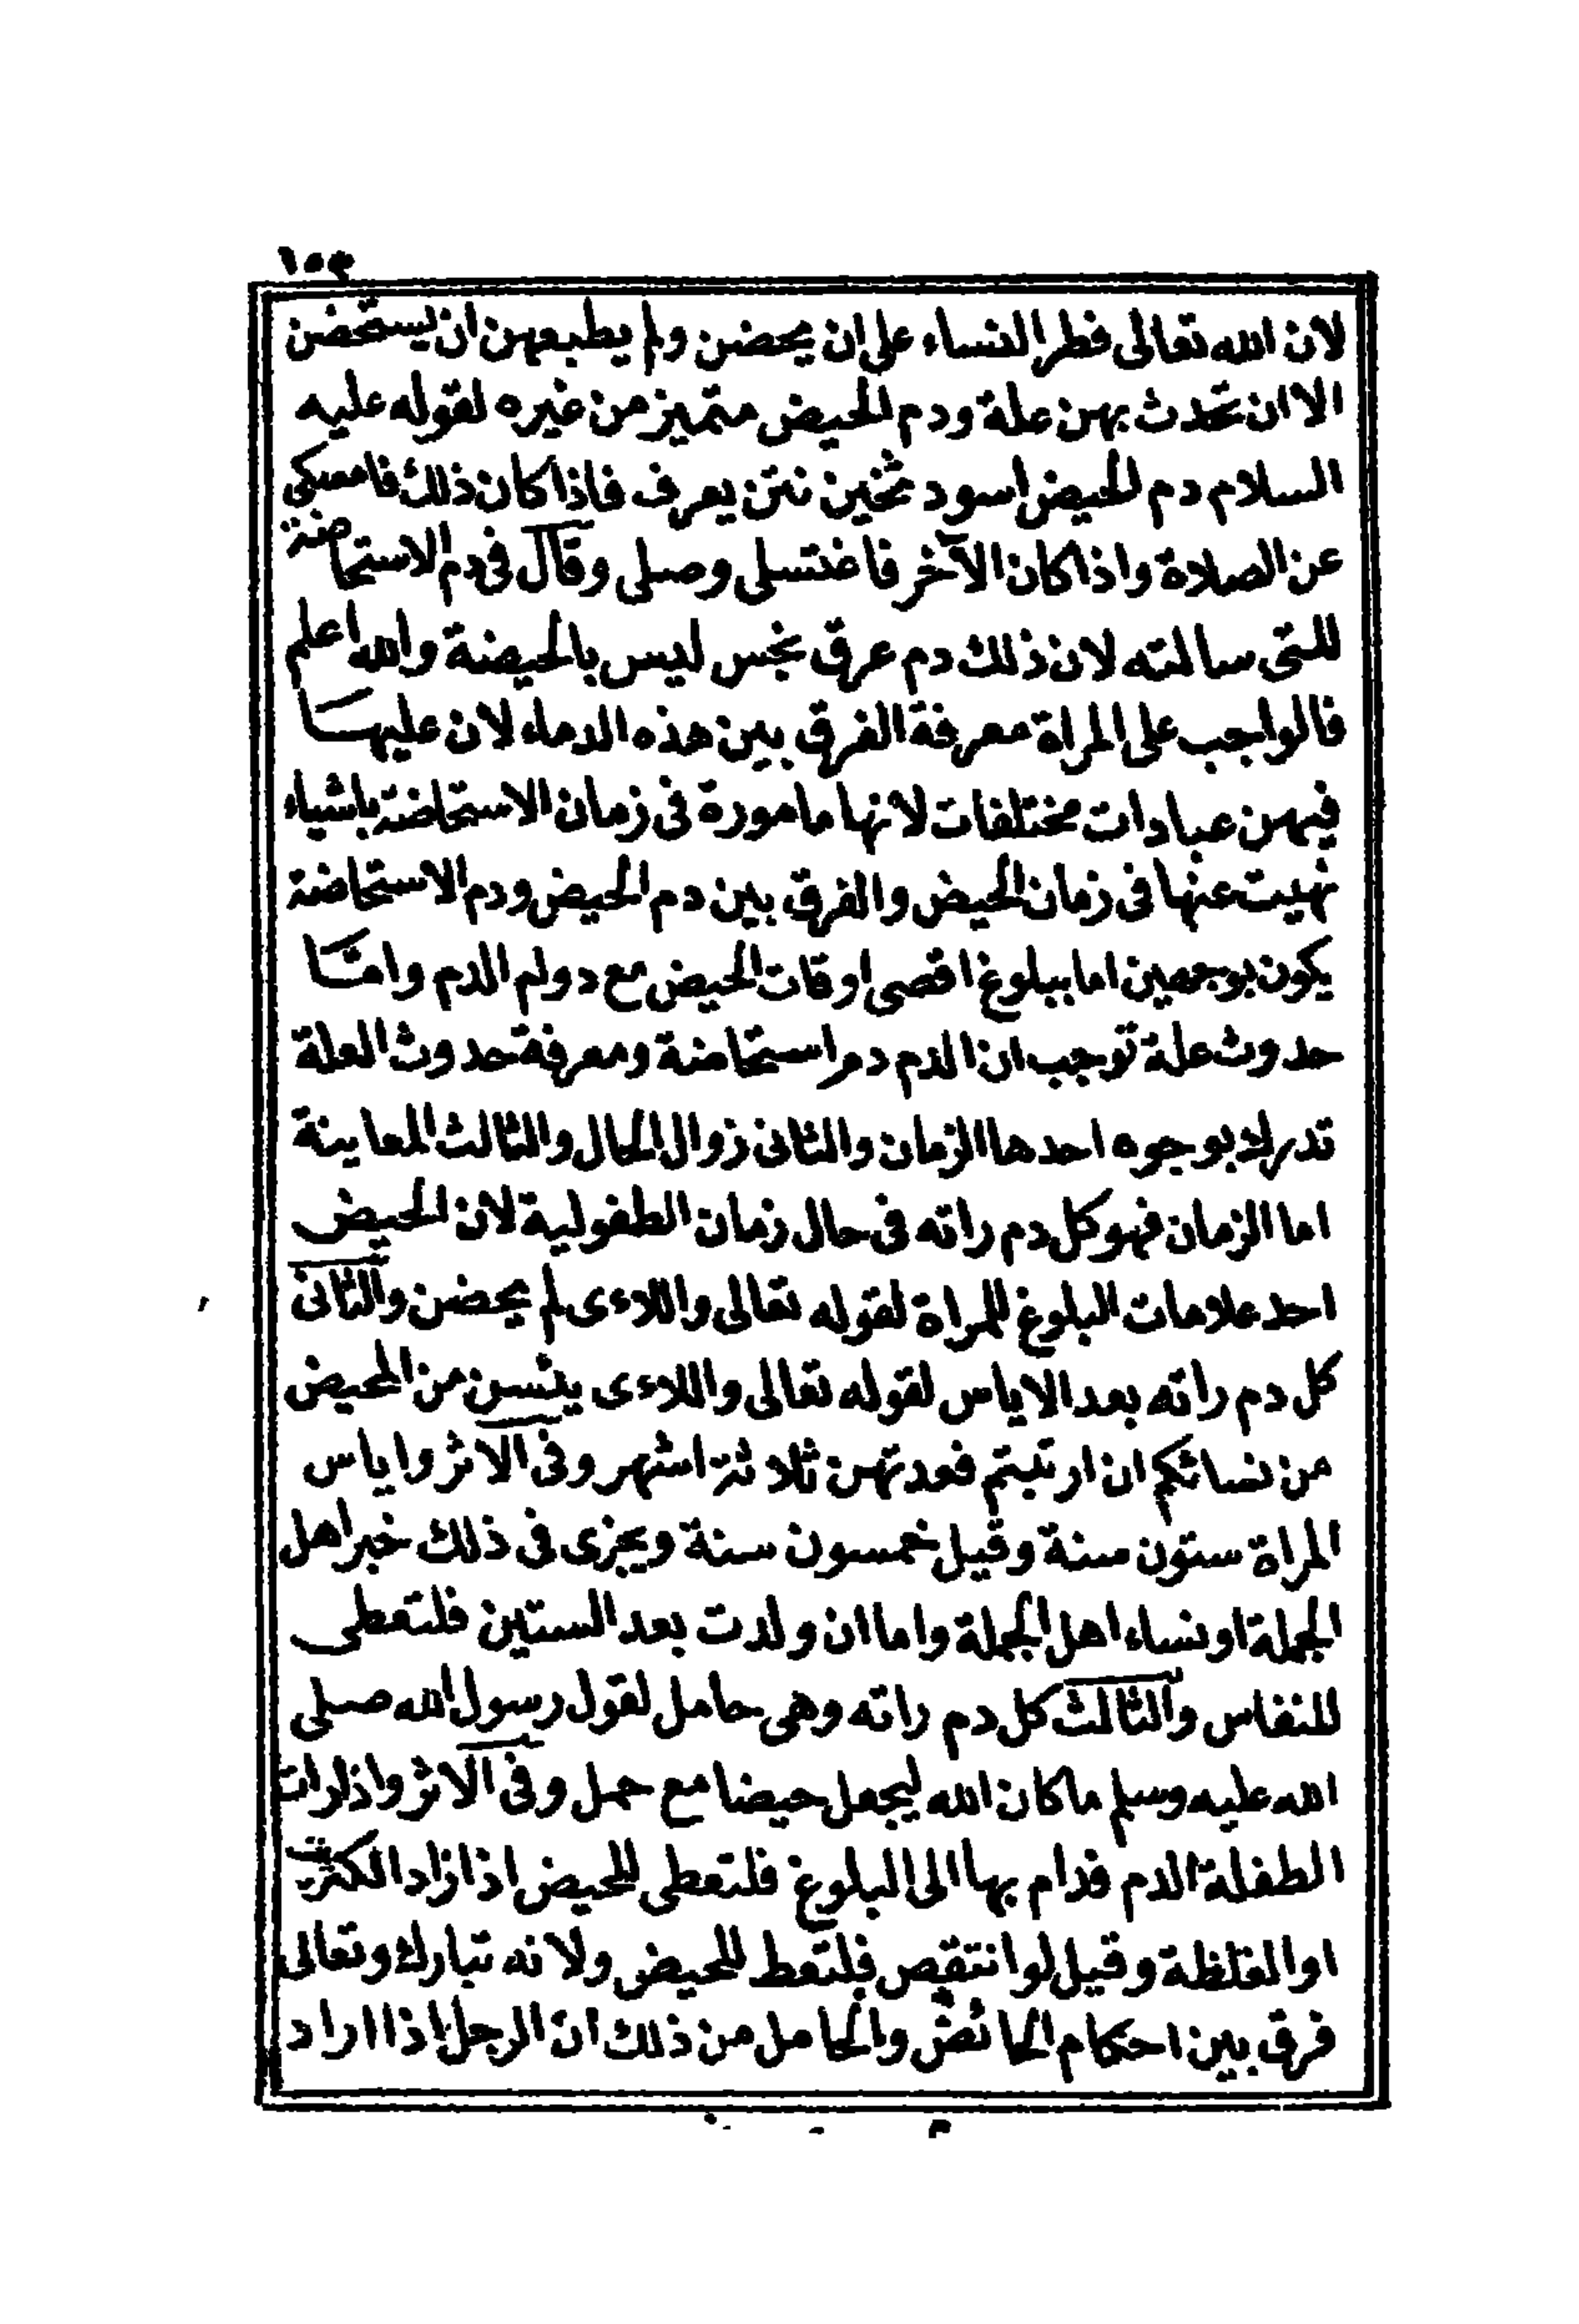 ١٥٣
لان الله تعالى فطر النساء على ان يحضن ولم يطبعهن ان يستحضن
الا ان تحدث بهن علة ودم الحيض متميز من غيره لقوله عليه
السلام دم الحيض اسود ثخين نتن يعرف فاذا كان ذلك فامسكى
عن الصلاة واذا كان الآخر فاغتسلى وصلى وقال فى دم الاستحاضة
للتى سالته لان ذلك دم عرق نجس ليس بالحيضة والله اعلم
فالواجب على المراة معرفة الفرق بين هذه الدماء لان عليها
فيهن عبادات مختلفات لانها مامورة فى زمان الاستحاضة باشياء
نهيت عنها فى زمان الحيض والفرق بين دم الحيض ودم الاستحاضة
يكون بوجهين اما ببلوغ اقصى اوقات الحيض مع دوام الدم وامّا
حدوث علة توجب ان الدم دم استحاضة ومعرفة حدوث العلة
تدرك بوجوه احدها الزمان والثانى زوال الحال والثالث المعاينة
اما الزمان فهو كل دم راته فى حال زمان الطفولية لان الحيض
احد علامات البلوغ للمراة لقوله تعالى واللاءى لم يحضن والثانى
كل دم راته بعد الاياس لقوله تعالى واللاءى يئسن من المحيض
من نسائكم ان ارتبتم فعدتهن ثلاثة اشهر وفى الاثر واياس
المراة ستون سنة وقيل خمسون سنة ويجزى فى ذلك خبر اهل
الجملة او نساء اهل الجملة واما ان ولدت بعد الستين فلتعطى
للنفاس والثالث كل دم راته وهى حامل لقول رسول الله صلى
الله عليه وسلم ما كان الله ليجعل حيضا مع حمل وفى الاثر واذا رات
الطفلة الدم فدام بها الى البلوغ فلتعطى للحيض اذا زاد الكثرة
او الغلظة وقيل لو انتقص فلتعط للحيض ولانه تبارك وتعالى
فرق بين احكام الحائض والحامل من ذلك ان الرجل اذا اراد